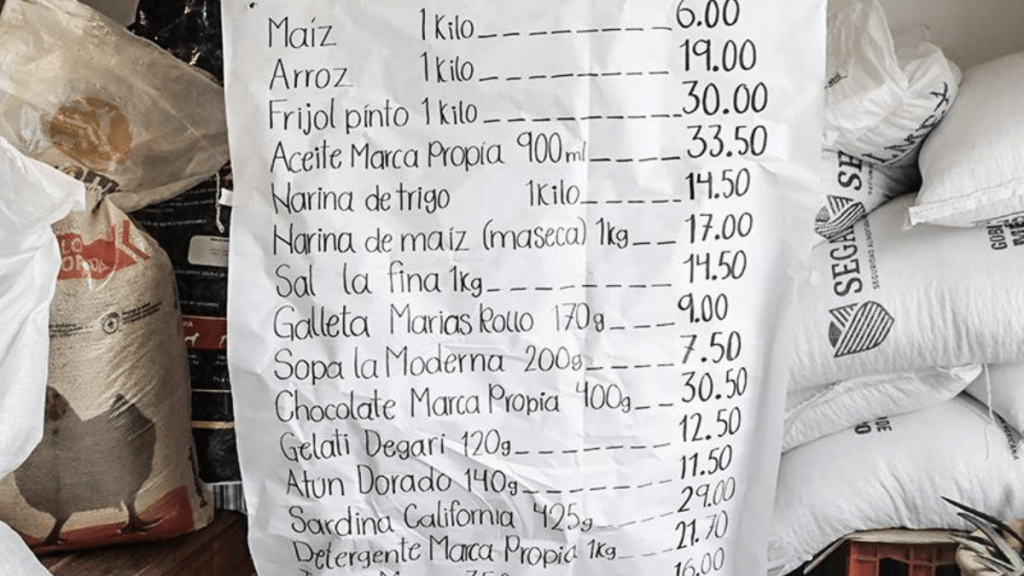 Maíz 1 Kilo_ _ _ _ _ _ _ _ _ 6.00
Arroz 1 kilo_ _ _ _ _ _ _ _ _ 19.00
Frijol pinto 1 kilo_ _ _ _ _ _ _ _ _ 30.00
Aceite Marca Propia 900ml_ _ _ _ _ 33.50
Harina de trigo 1Kilo_ _ _ _ _ _ 14.50
Harina de maíz (maseca) 1kg_ _ 17.00
Sal la fina 1kg_ _ _ _ _ _ _ _ 14.50
Galleta Marias Rollo 170g_ _ _ 9.00
Sopa la Moderna 200g_ _ _ _ _ 7.50
Chocolate Marca Propia 400g_ _ 30.50
Gelati Degari 120g_ _ _ _ _ _ _ 12.50
Atun Dorado 140g_ _ _ _ _ _ _ 11.50
Sardina California 425g_ _ _ _ 29.00
Detergente Marca Propia 1kg_ _ _ 21.70
16.00
SEGA